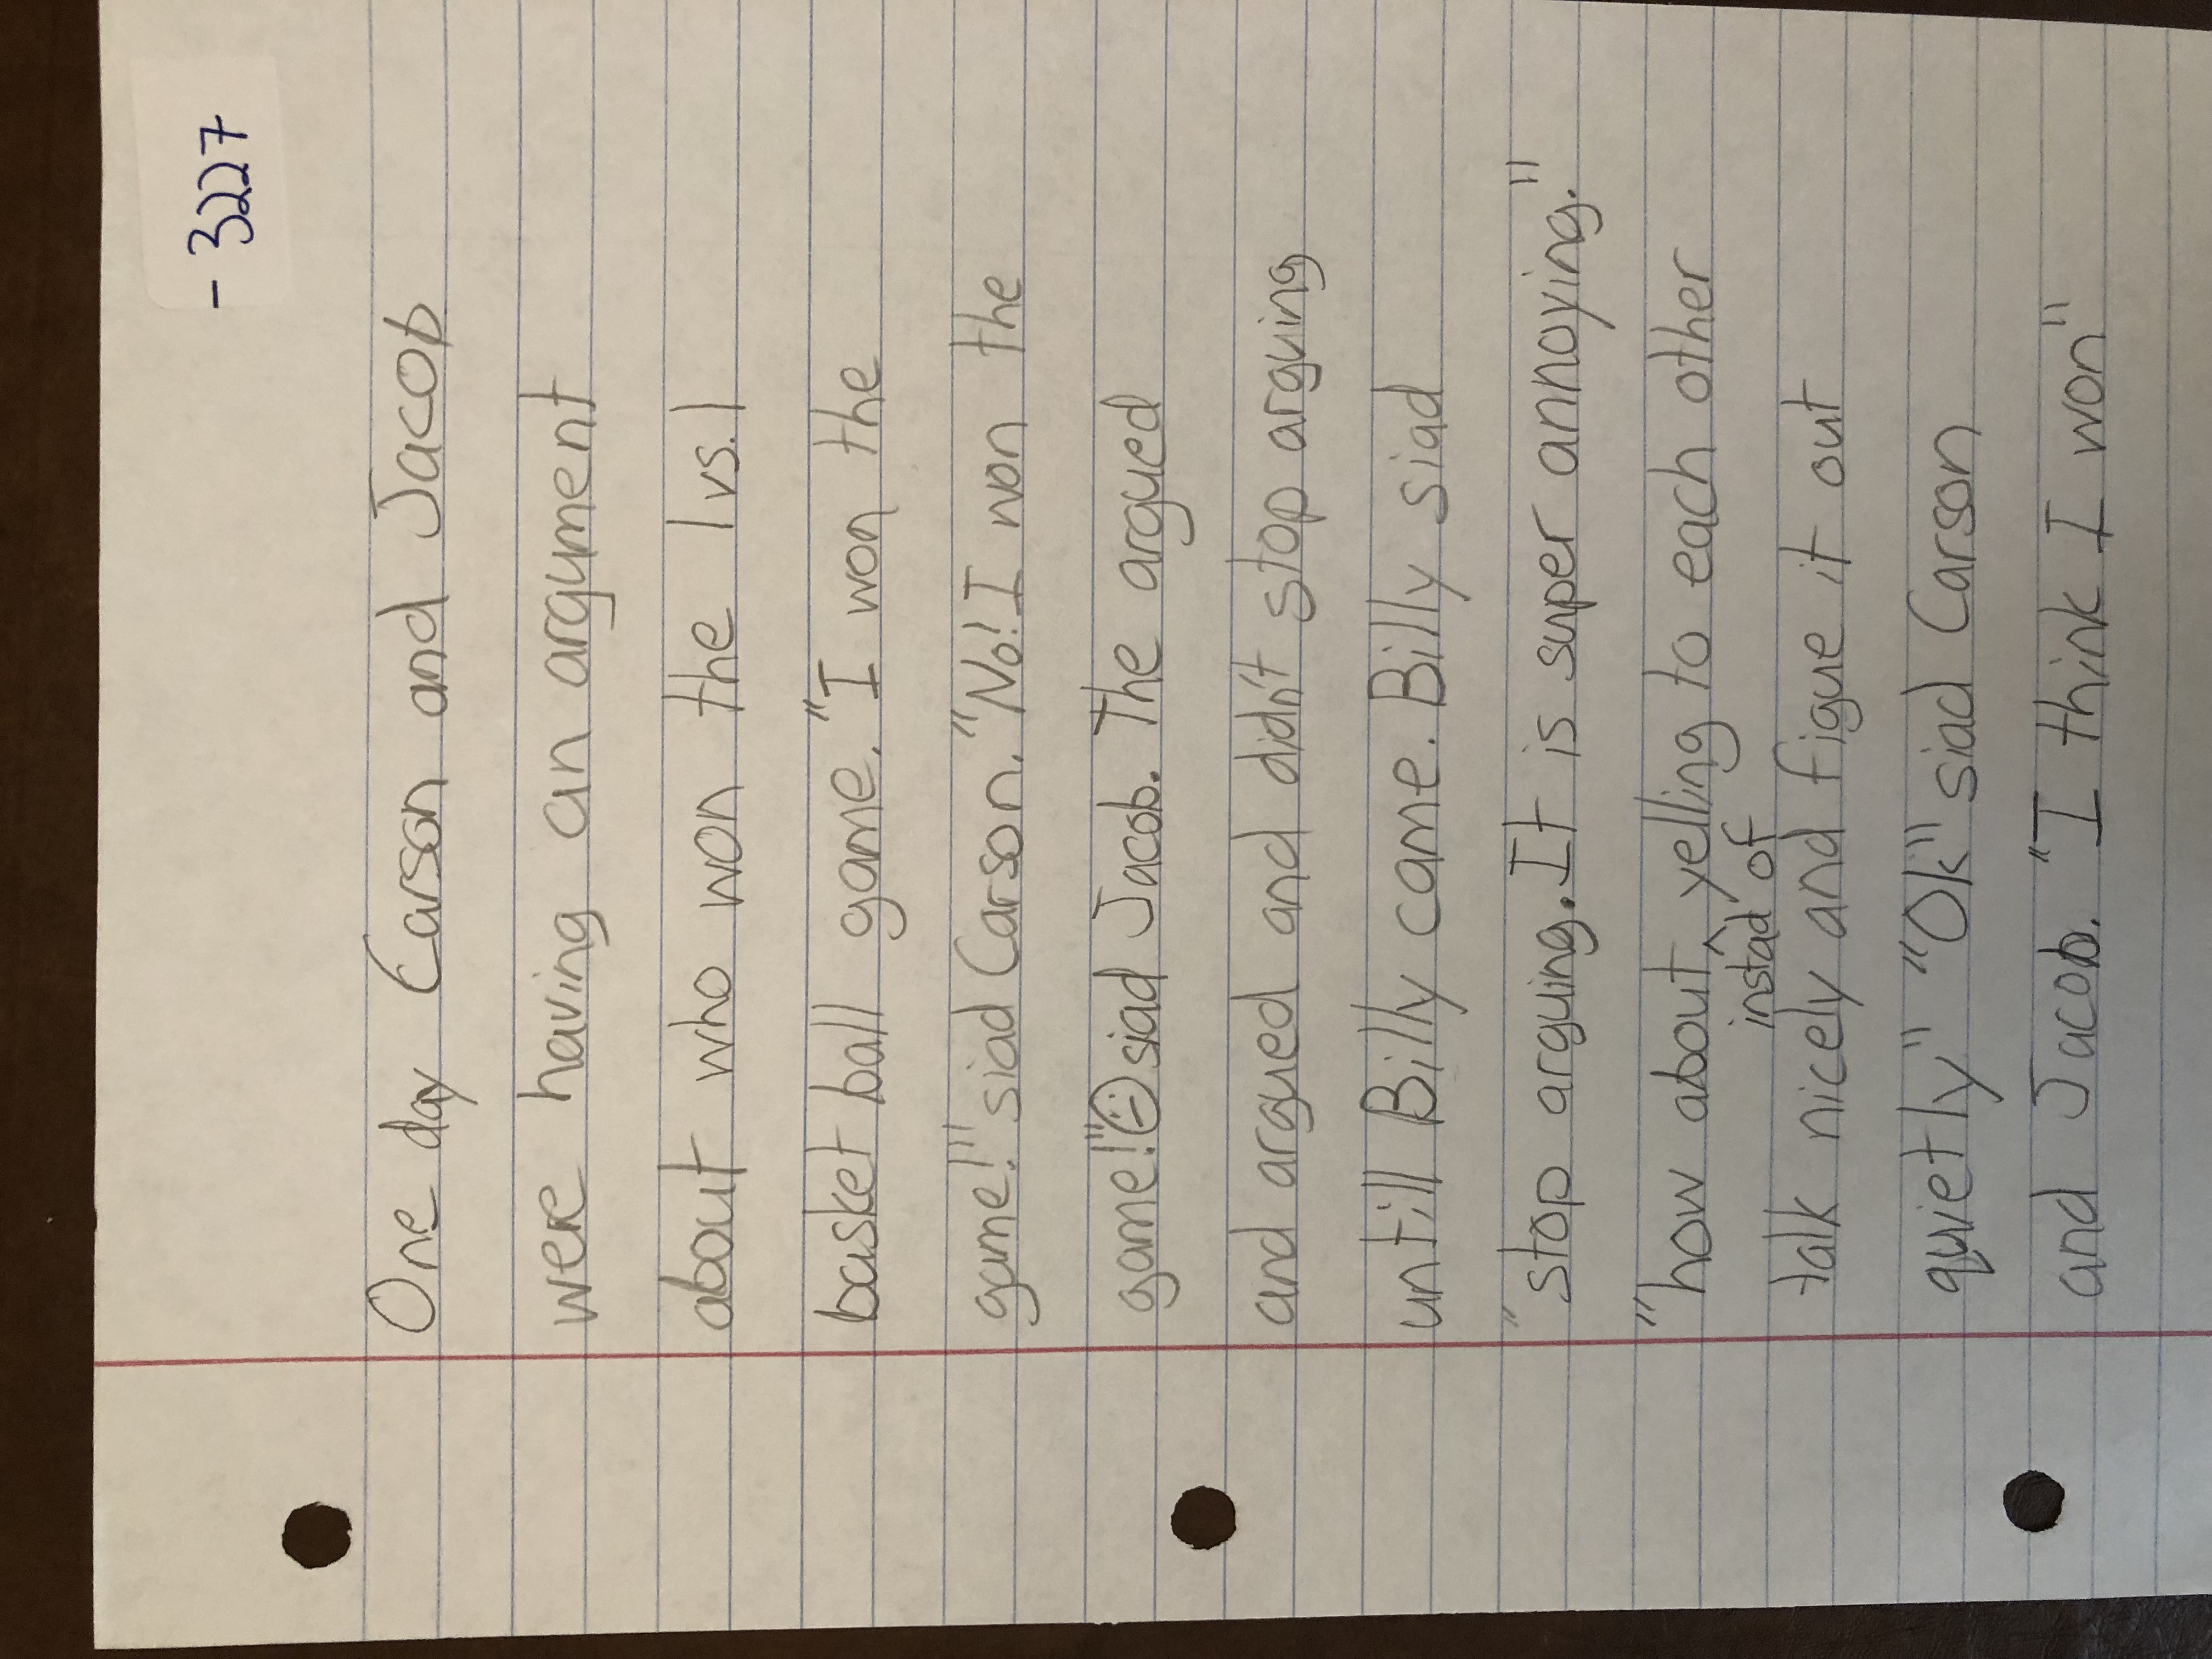 - 3227
One day Carson and Jacob
were having an argument
about who won the 1 vs. 1
basket ball game. "I won the
game!" siad Carson. "No! I won the
game!" siad Jacob. The argued
and argued and didn't stop arguing
untill Billy came. Billy siad
"stop arguing. It is super annoying."
"how about yelling to each other
instad of
talk nicely and figue it out
quietly" "Ok" siad Carson
and Jacob. "I think I won"